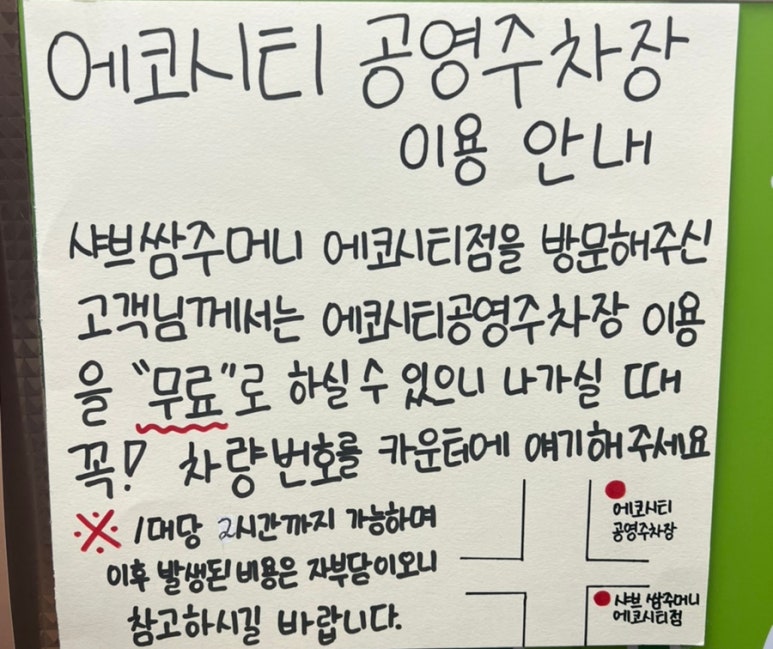 에코시티 공영주차장
이용 안내
샤브쌈주머니 에코시티점을 방문해주신
고객님께서는 에코시티공영주차장 이용
을 "무료"로 하실 수 있으니 나가실 때
꼭! 차량번호를 카운터에 얘기해주세요
※ 1대당 2시간까지 가능하며
이후 발생된 비용은 자부담이오니
참고하시길 바랍니다.
에코시티
공영주차장
샤브 쌈주머니
에코시티점